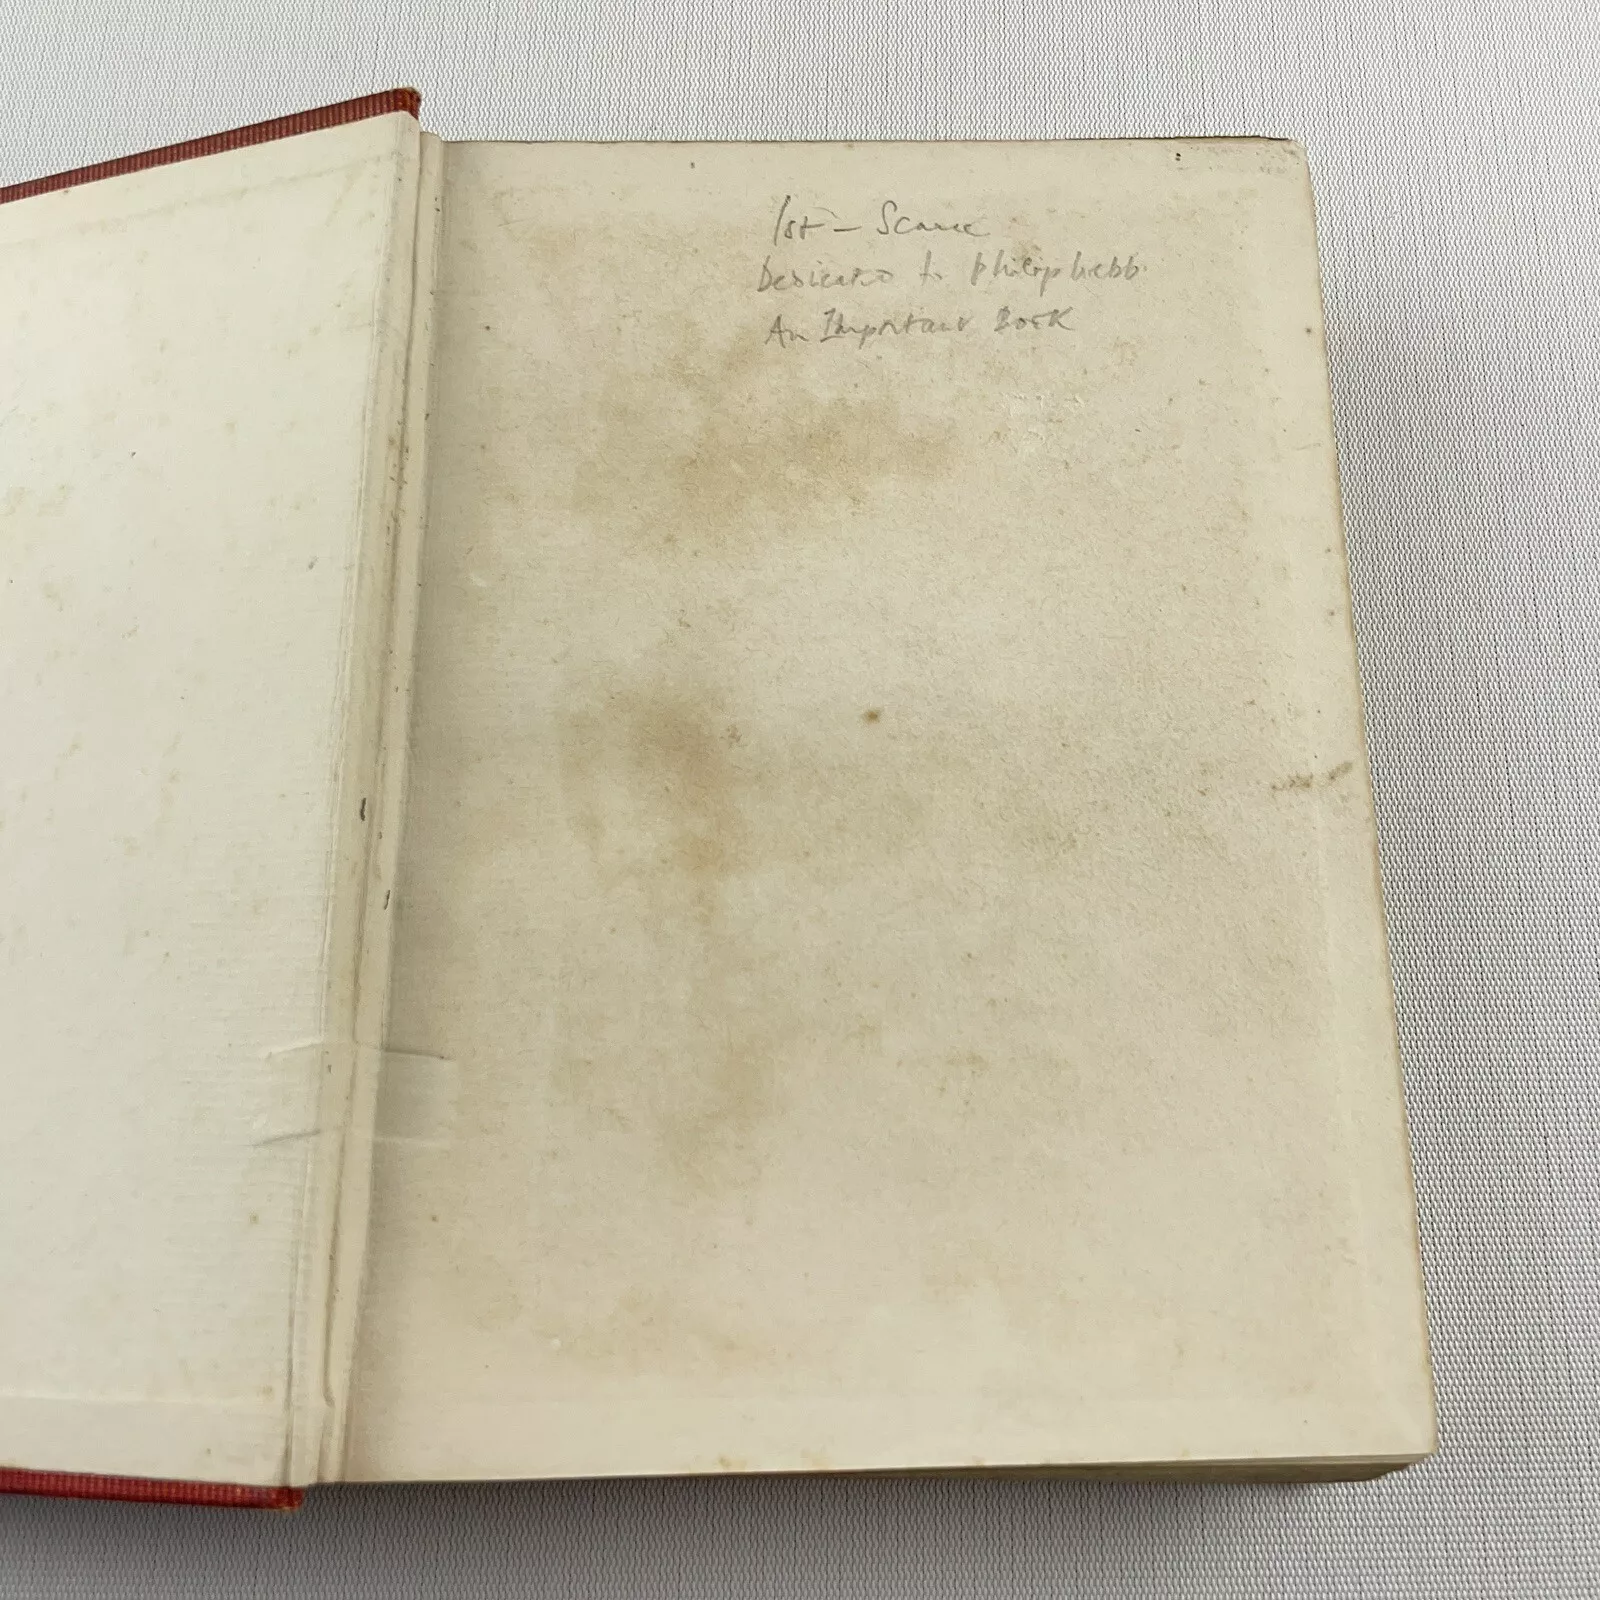 1st – Scarce
Dedicated to Philip Webb
An Important Book